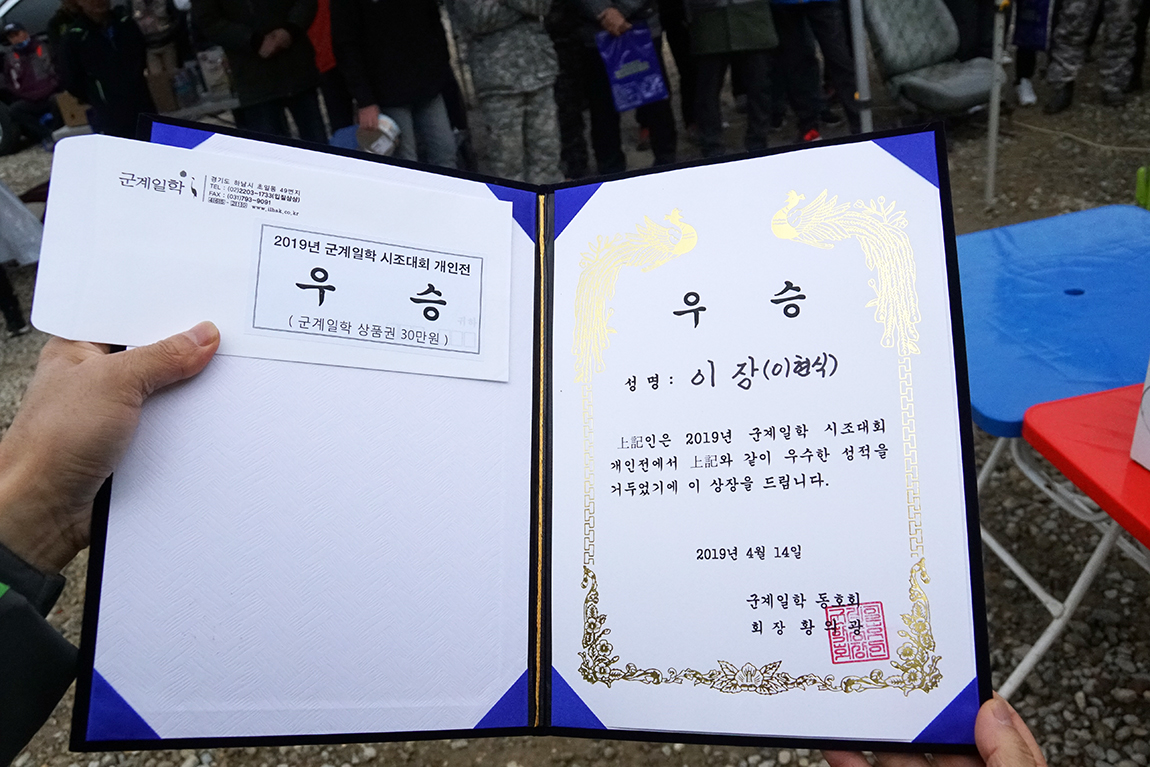 군계일학
경기도 하남시 초일동 49번지
TEL : (02)2203-1733(입질상상)
FAX : (031)793-9091
www.ilhak.co.kr
2019년 군계일학 시조대회 개인전
우 승
( 군계일학 상품권 30만원 )
귀하
우 승
성 명 : 이 장(이현식)
上記인은 2019년 군계일학 시조대회
개인전에서 上記와 같이 우수한 성적을
거두었기에 이 상장을 드립니다.
2019년 4월 14일
군계일학 동호회
회 장 황 광